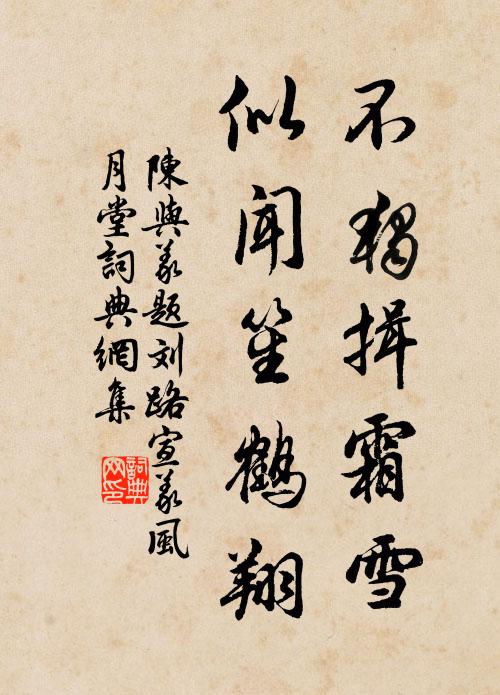 不独揖霜雪
似闻笙鹤翔
陳與義題刘路宣義風
月堂詞典網集
詞典网印